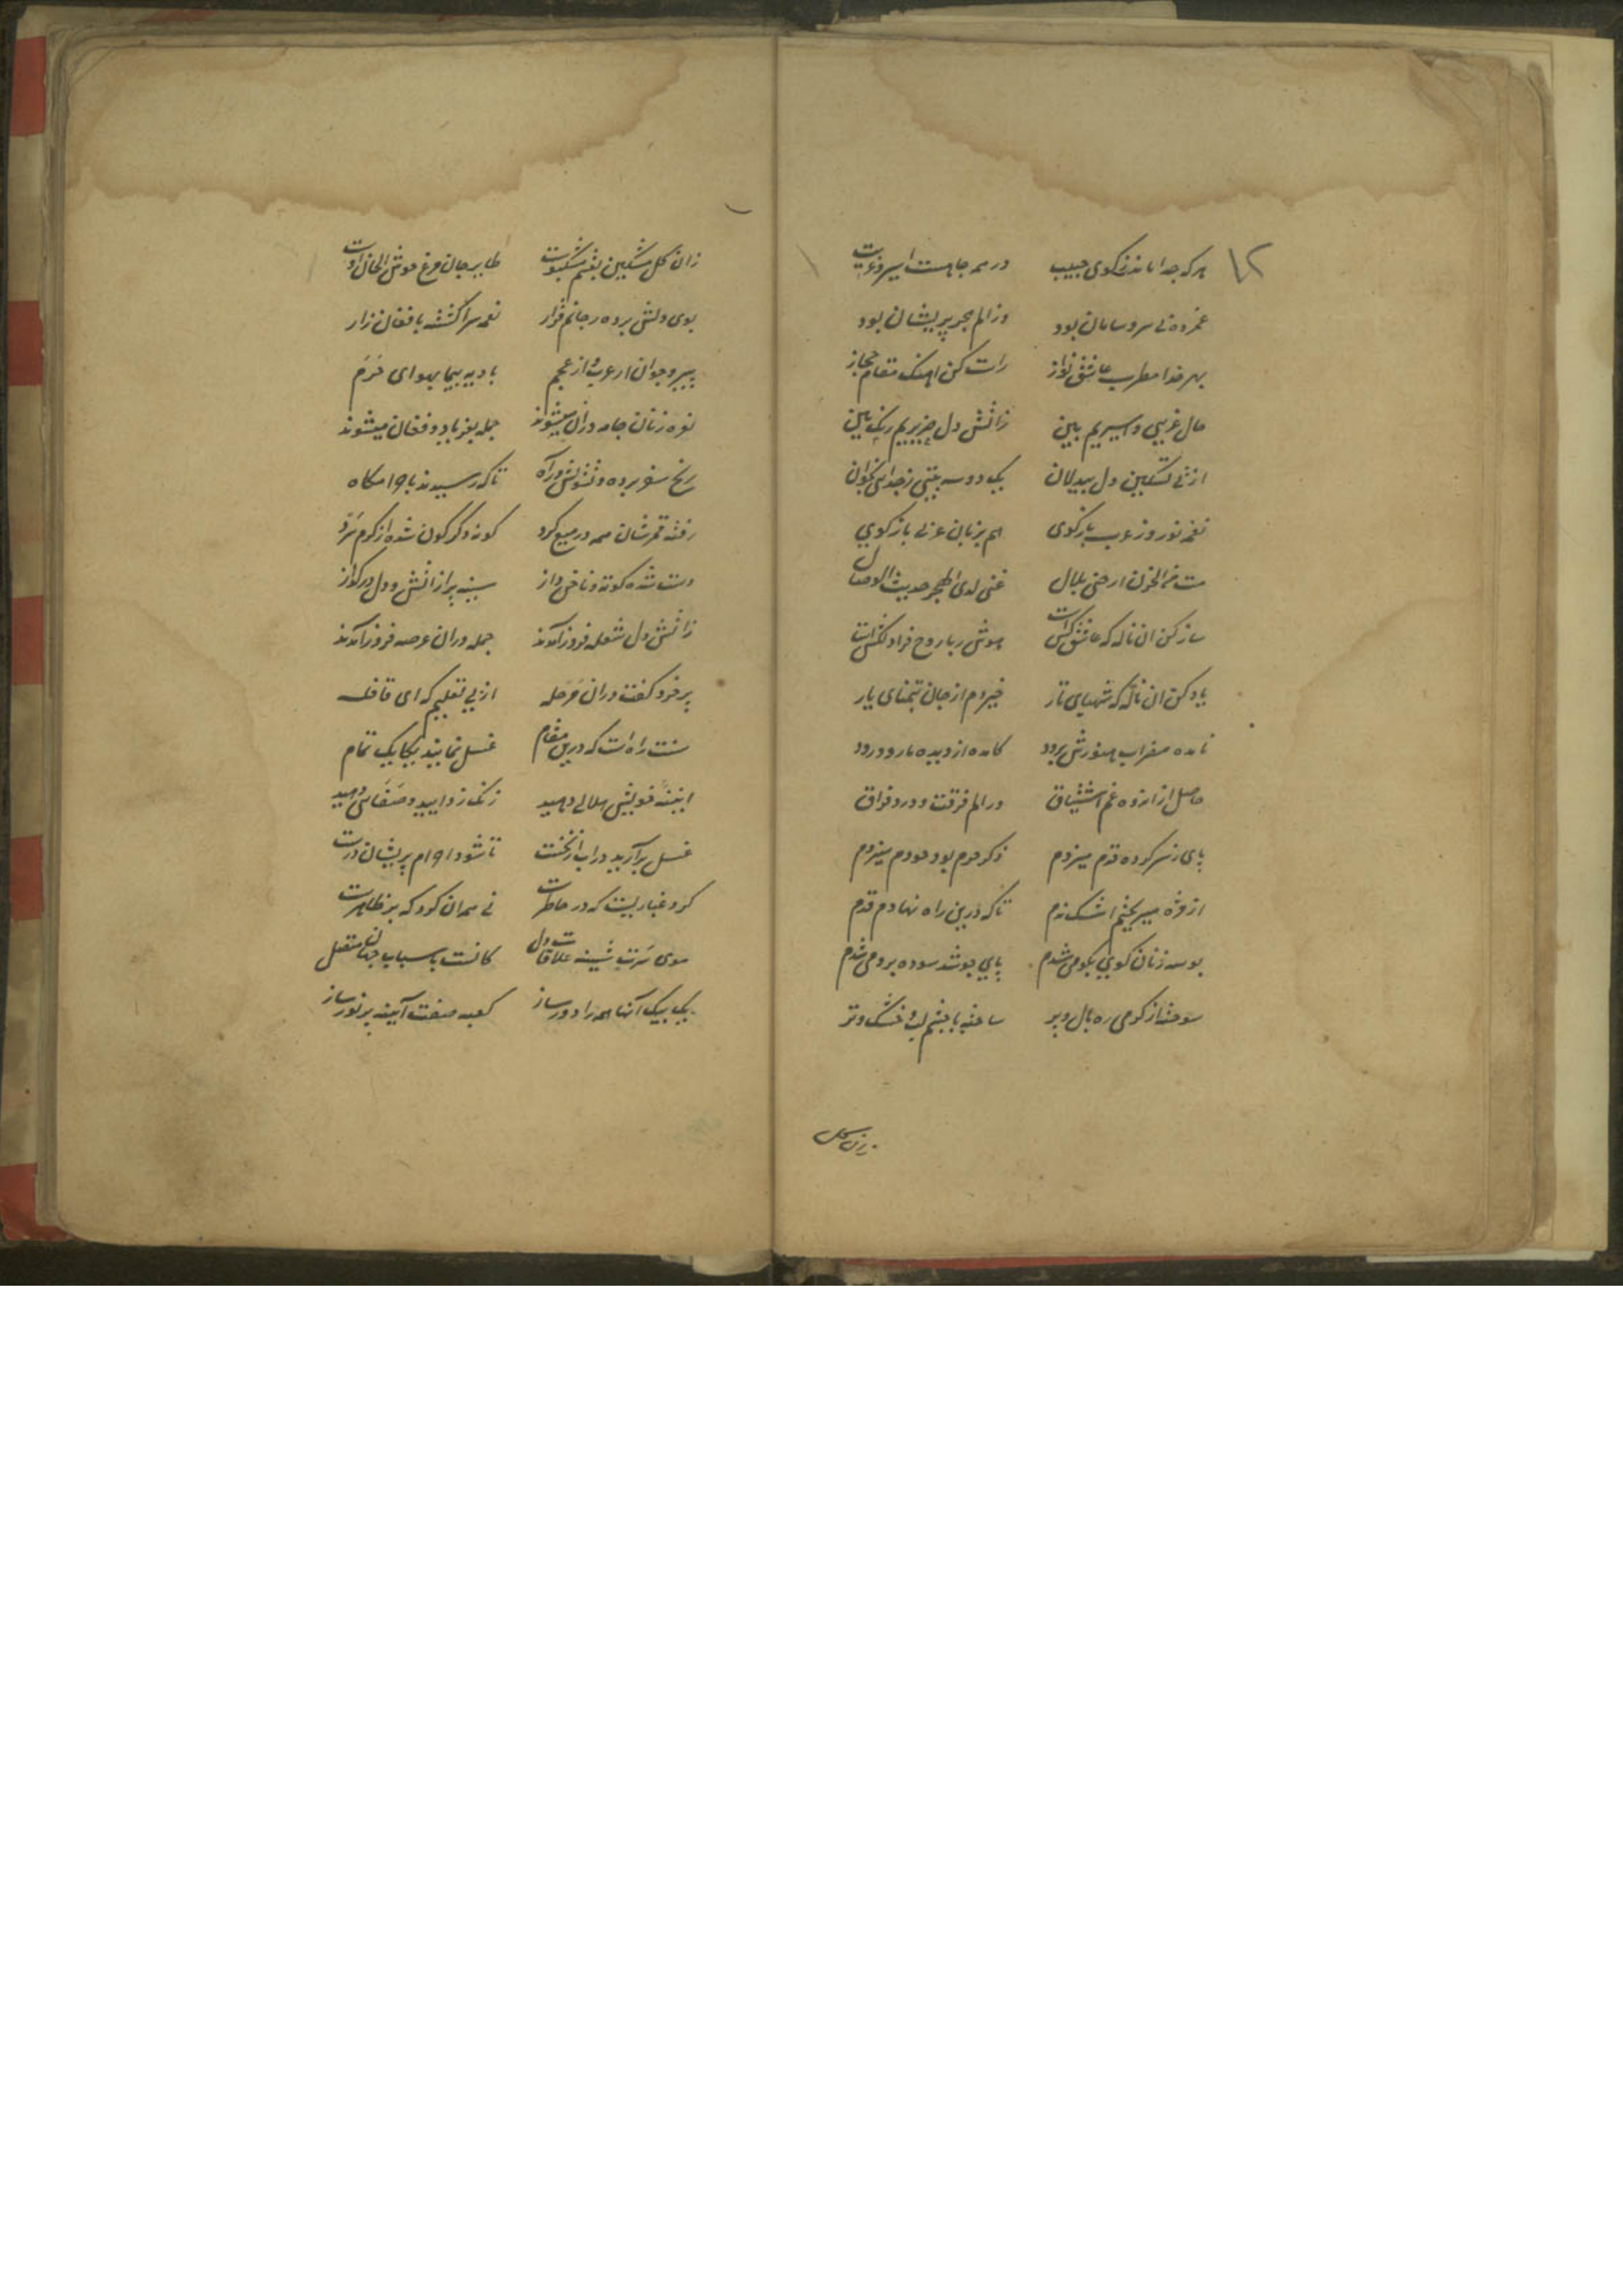 ۱۲
هر که جدا ماند ز کوی حبیب در همه جا هست اسیر و غریب
غمزده بی سر و سامان بود وز الم هجر پریشان بود
بهر خدا مطرب عاشق نواز راست کن اهنک مقام حجاز
حال غریبی و اسیریم ببین زاتش دل
از پی تسکین دل بیدلان یک دو سه بیتی ز جدائی بخوان
نغمه نوروز عرب بازکوی هم بزبان عربی بازکوی
مت من الحزن ارحنی بلال غنی لدی الهجر حدیث الوصال
ساز کن ان ناله که عاشق کش است هوش ربا روح فزا دلکش است
یاد کن ان ناله که شبهای تار میزدم از جان بتمنای یار
حاصل از اندوه غم اشتیاق در الم فرقت و درد فراق
پای ز سر کرده قدم میزدم ذکر حرم بود چو دم میزدم
از مژه میریختم اشک ندم تا که درین راه نهادم قدم
بوسه زنان کوی بکو می شدم پای چو شد سوده برو می شدم
سوختم از کرمی ره بال و پر ساخته با چشم تر
زان کل
زان کل مشکین نفسم مشکبوست طایر جان مرغ خوش الحان اوست
بوی دلش برده ز جانم قرار نغمه سرا کشته بافغان زار
پیر و جوان از عرب و از عجم بادیه پیما بهوای حرم
نعره زنان جامه دران میشوند جمله بفریاد و فغان میشوند
رنج سفر برده و تشویش راه تا که رسیدند باحرامکاه
کونه دکرکون شده از کرم و سرد
دست شده کوته و ناخن دراز سینه پر از اتش و دل در کداز
زاتش دل شعله فروز آمدند جمله دران عرصه فروز آمدند
پیر خرد کفت دران مرحله از پی تعلیم که ای قافله
سنت راه است که درین مقام غسل نمایند یکایک تمام
اینه خویش جلائی دهید زنک زدایید و صفائی دهید
غسل برآرید در اب از نخست تا شود احرام پریشان درست
کرد غباریست که در خاطرست نی همان کرد که بر ظاهرست
موی سرت علاقات دل کانست باسباب جهان متصل
یک بیک آنها همه را دور ساز کعبه صفت آینه پر نور ساز